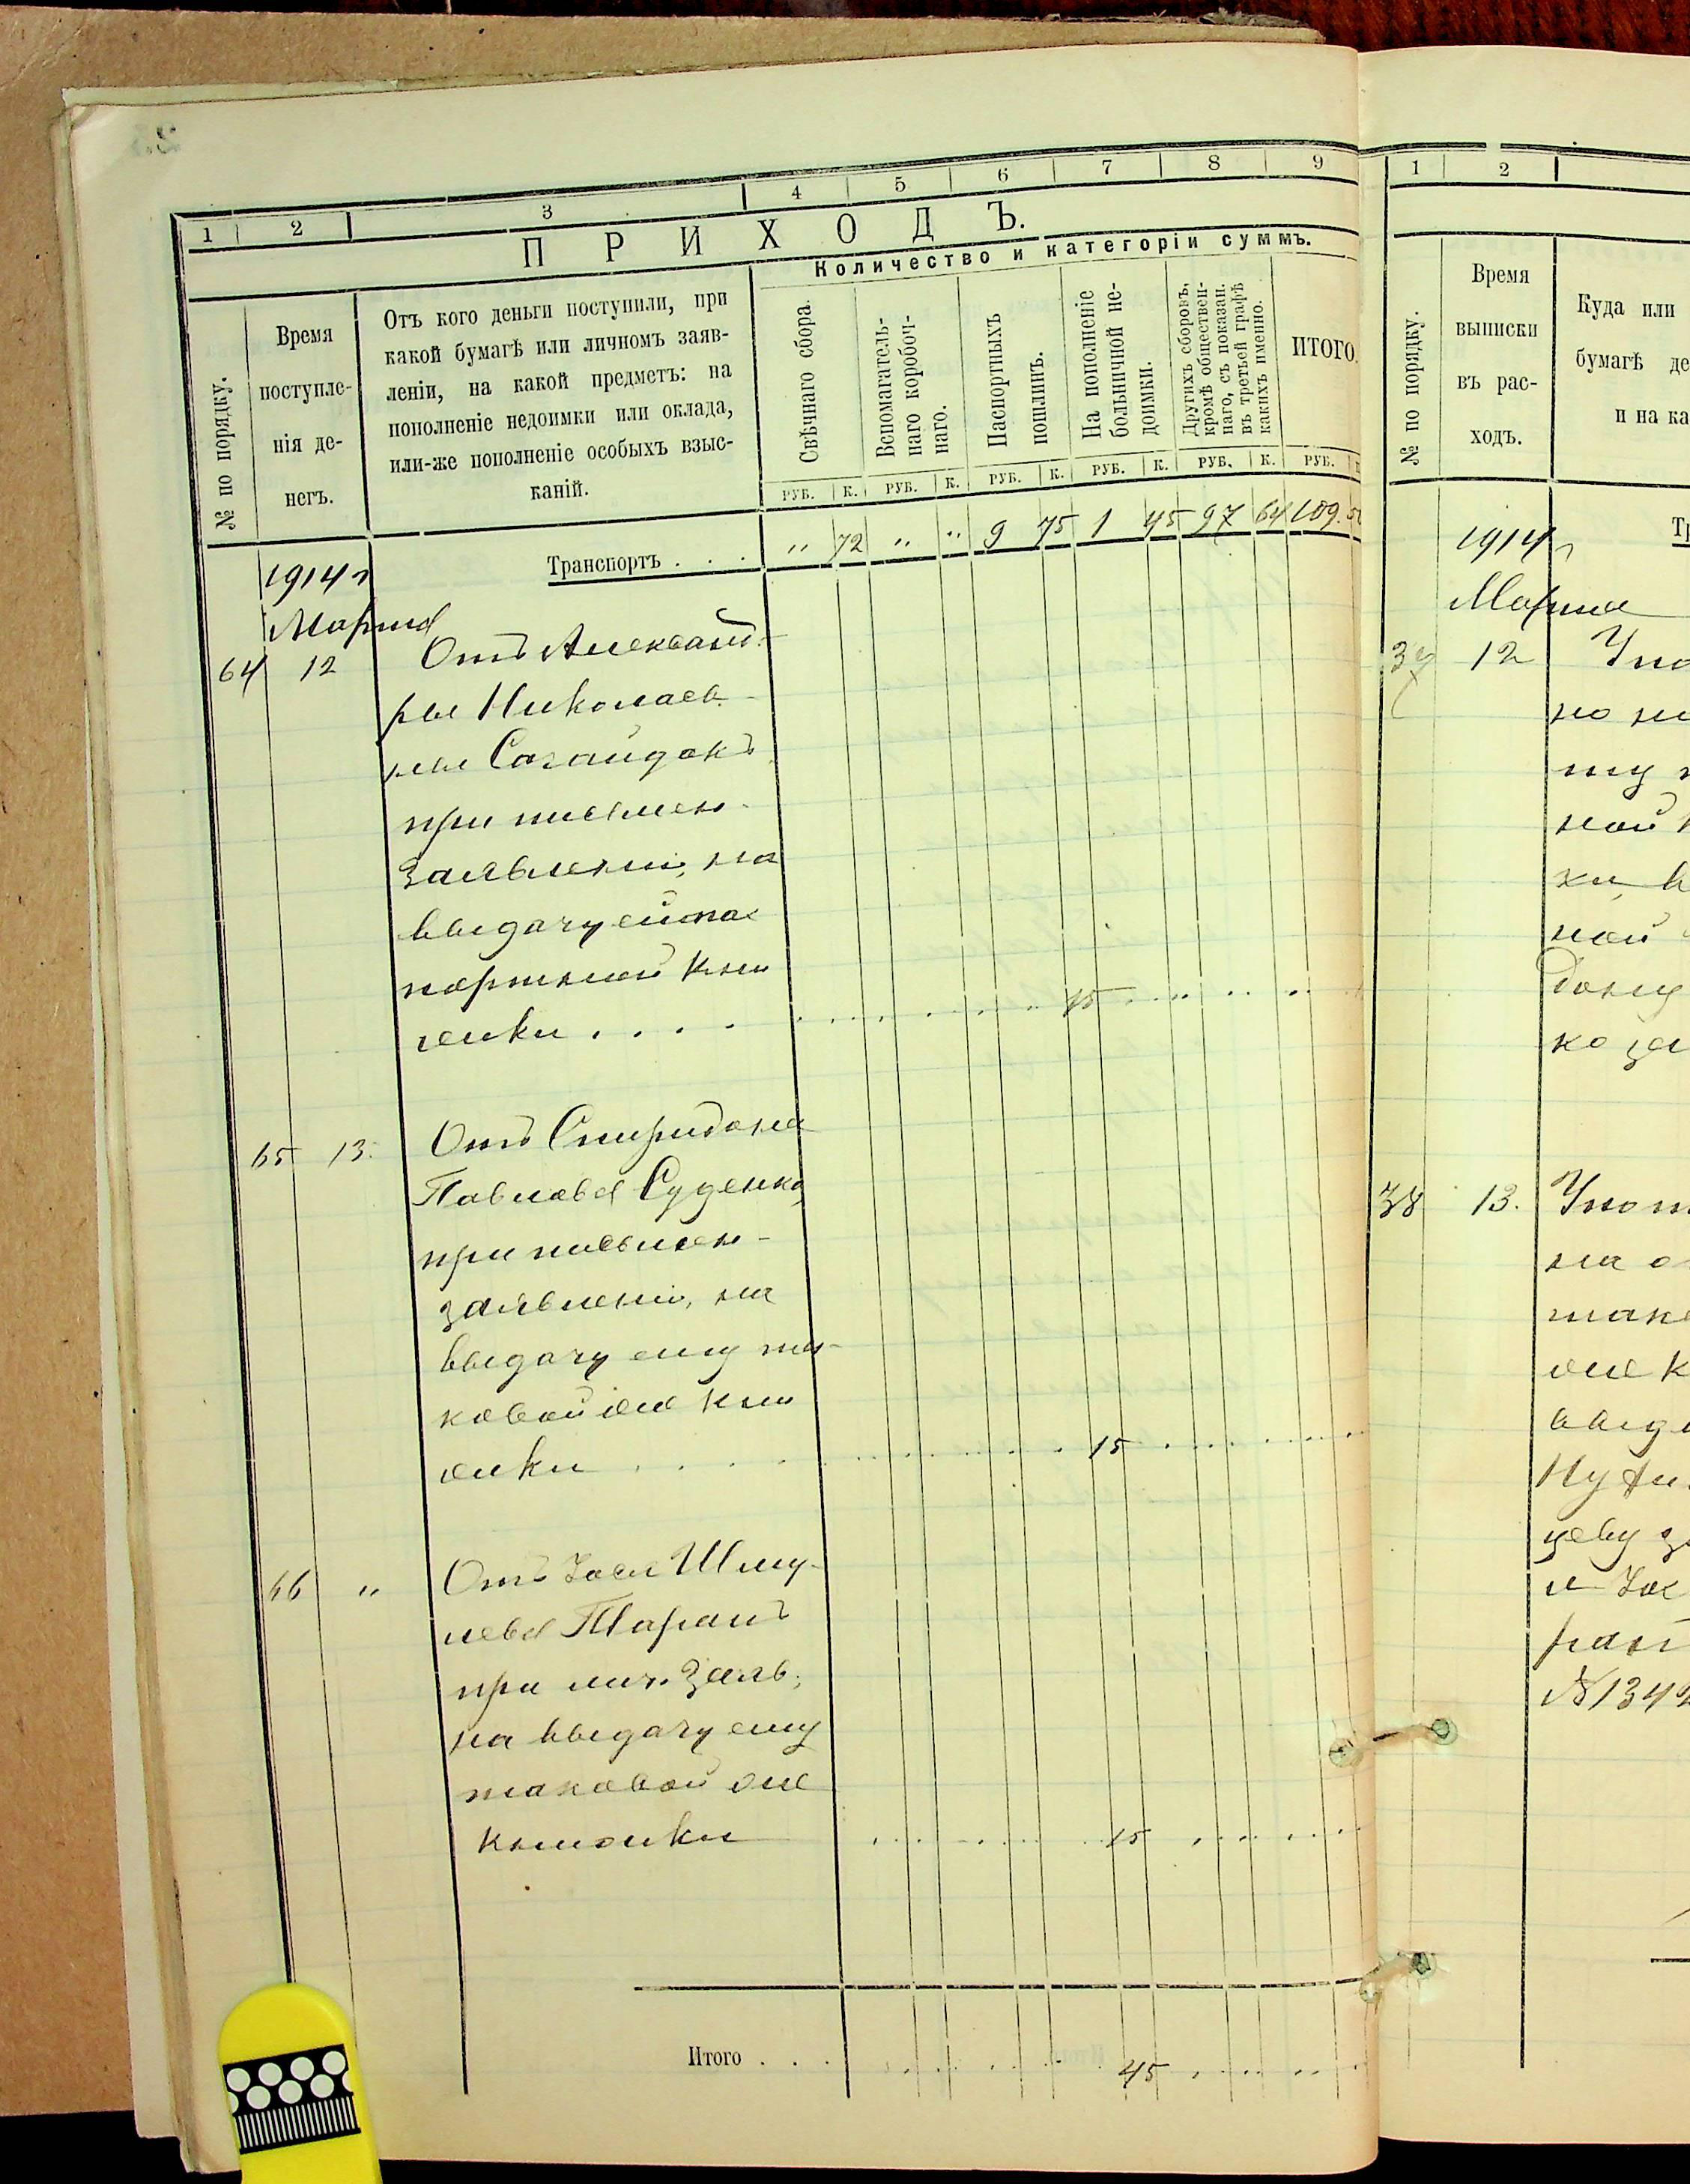 1 2 3 4 5 6 7 8 9
ПРИХОДЪ.
Количество и категоріи суммъ.
№ по порядку.
Время
поступле-
нія де-
негъ.
Отъ кого деньги поступили, при
какой бумагѣ или личномъ заяв-
леніи, на какой предметъ: на
пополненіе недоимки или оклада,
или-же пополненіе особыхъ взыс-
каній.
Свѣчнаго сбора.
Вспомагатель-
наго коробоч-
наго.
Паспортныхъ
пошлинъ.
На пополненіе
больничной не-
доимки.
Другихъ сборовъ,
кромѣ обществен-
наго, съ показан.
въ третьей графѣ
какихъ именно.
ИТОГО.
РУБ. К. РУБ. К. РУБ. К. РУБ. К. РУБ. К. РУБ.
Транспортъ . . . " 72 " " 9 75 1 45 97 64 109.
1914 г
Марта
64 12 Отъ Александ-
ры Николаев-
ны Сагайдакъ
при письмен-
заявленіи, на
выдачу ей пас
портной кни
жки . . . . 15
65 13. Отъ Спиридона
Павлова Суденко,
при письмен-
заявленіи, на
выдачу ему та-
ковой же кни
жки 15
66 " Отъ Іосл Шму-
лева Таранъ
при лич. заяв.,
на выдачу ему
таковой же
книжки 15
Итого . . . 45
1 2
№ по порядку.
Время
выписки
въ рас-
ходъ.
Куда или
бумагѣ де
и на ка
1914 г
Марта
12
но
ной
ной
38 13.
на
№ 1342